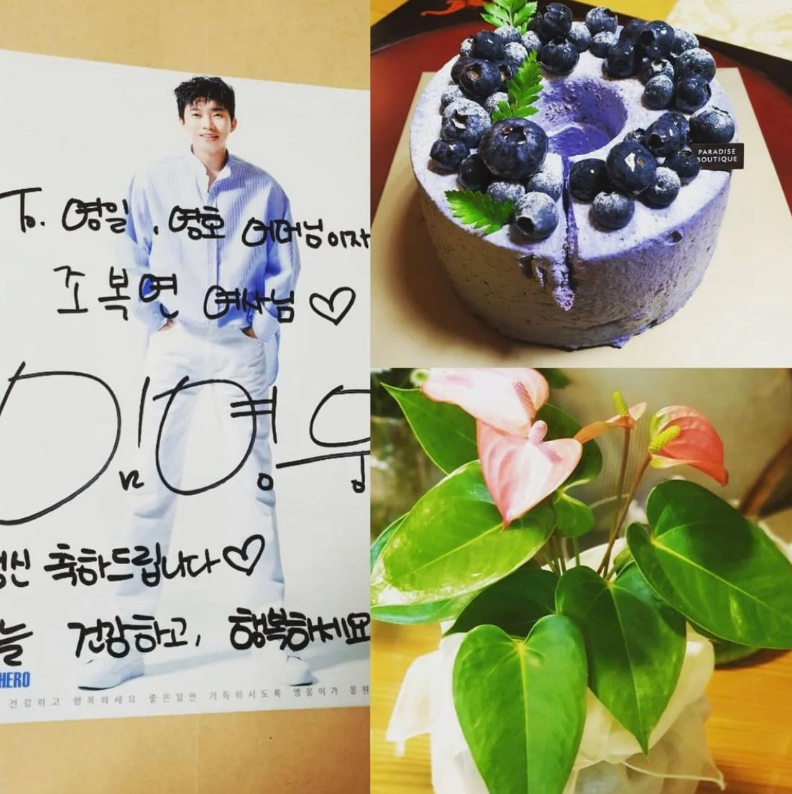 To. 영일, 영호 어머님이자
조복연 여사님 ♡
임영웅
생신 축하드립니다 ♡
늘 건강하고, 행복하세요
HERO
건강하고 행복하세요 좋은일만 가득하시도록 영웅이가 응원
PARADISE
BOUTIQUE